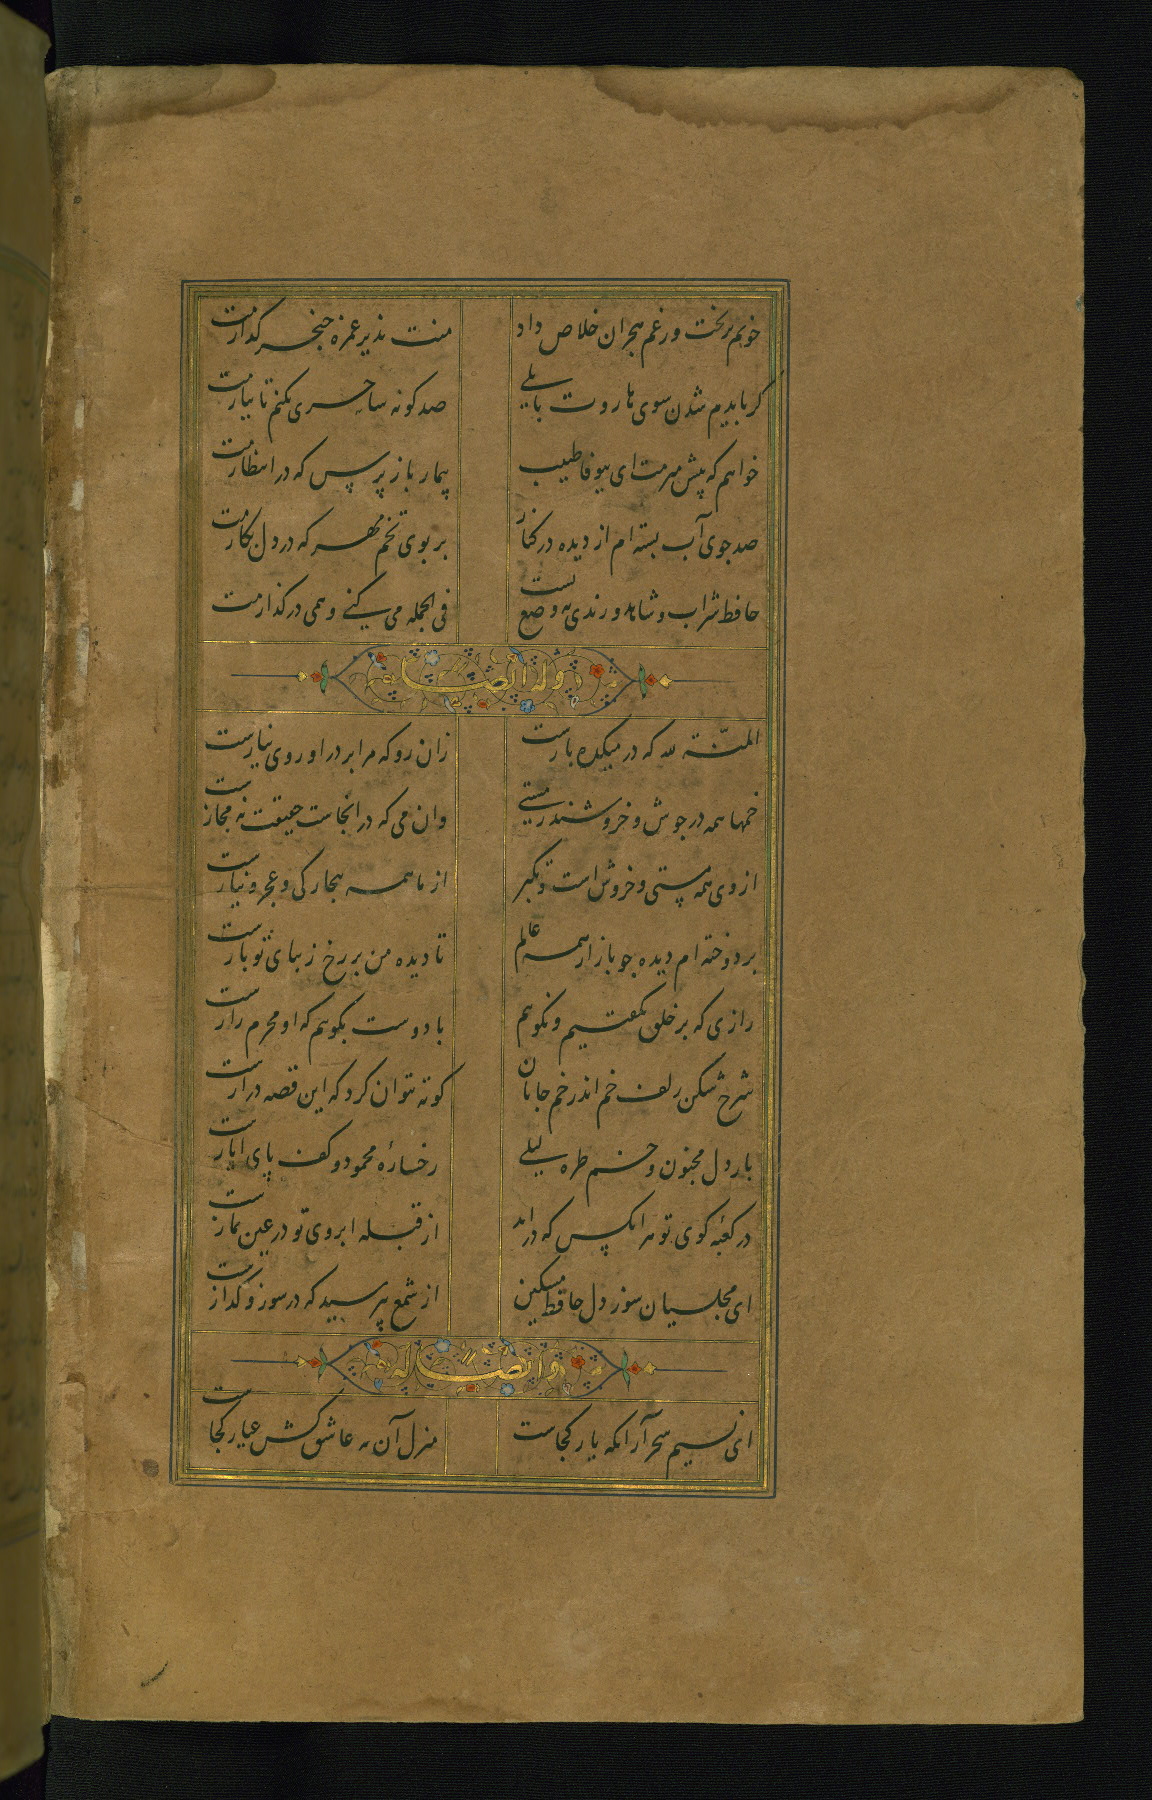 خونم بریخت و ز غم هجران خلاص داد
منت پذیر غمزه خنجر گذارمت
گر بایدم شدن سوی هاروت بابلی
صد گونه ساحری بکنم تا بیارمت
خواهم که پیش میرمت ای بیوفا طبیب
بیمار باز پرس که در انتظارمت
صد جوی آب بسته ام از دیده در کنار
بر بوی تخم مهر که در دل بکارمت
حافظ شراب و شاهد و رندی نه وضع تست
فی الجمله می کنی و همی در گذارمت
وله ایضا
المنّة لله که در میکده بازست
زان رو که مرا بر در او روی نیازست
خمها همه در جوش و خروشند ز مستی
وان می که در انجاست حقیقت نه مجازست
از وی همه مستی و خروش است و تکبر
از ما همه بیچارگی و عجز و نیازست
بر دوخته ام دیده چو باز از همه عالم
تا دیده من بر رخ زیبای تو بازست
رازی که بر خلق نگفتیم و نگوئیم
با دوست بگوئیم که او محرم رازست
شرح شکن زلف خم اندر خم جانان
کوته نتوان کرد که این قصه درازست
بار دل مجنون و خم طره لیلی
رخساره محمود و کف پای ایازست
در کعبه کوی تو هر آنکس که در آید
از قبله ابروی تو در عین نمازست
ای مجلسیان سوز دل حافظ مسکین
از شمع بپرسید که در سوز و گدازست
وله ایضا
ای نسیم سحر آرامگه یار کجاست
منزل آن مه عاشق کش عیار کجاست